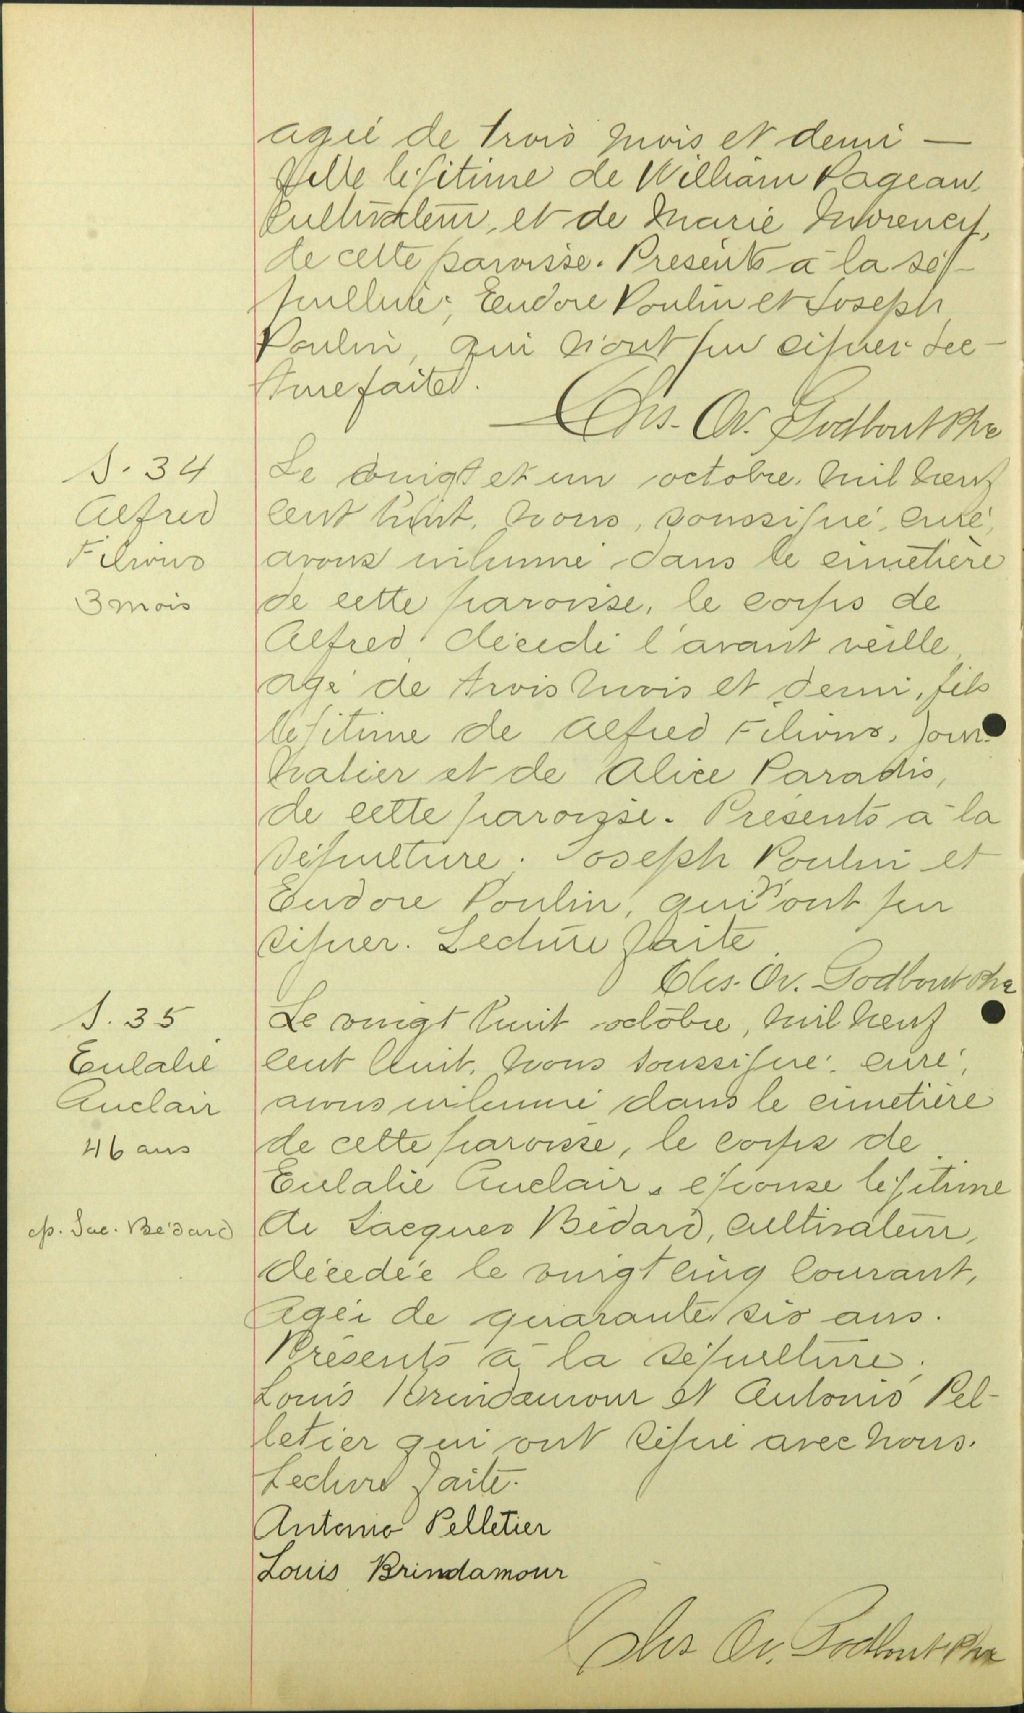 agée de trois mois et demi —
fille légitime de William Pageau,
cultivateur, et de Marie Morency,
de cette paroisse. Présents à la sé-
pulture, Eudore Poulin et Joseph
Poulin, qui n'ont pu signer. Lec-
ture faite.
Chs. Ov. Godbout Ptre
S. 34
Alfred
Filion
3 mois
Le vingt et un octobre, mil neuf
cent huit, nous, soussigné, curé,
avons inhumé dans le cimetière
de cette paroisse, le corps de
Alfred, décédé l'avant veille,
agé de trois mois et demi, fils
légitime de Alfred Filion, jour-
nalier et de Alice Paradis,
de cette paroisse. Présents à la
sépulture. Joseph Poulin et
Eudore Poulin, qui n'ont pu
signer. Lecture faite
Chs. Ov. Godbout Ptre
S. 35
Eulalie
Auclair
46 ans
ép. Jac. Bédard
Le vingt huit octobre, mil neuf
cent huit, nous soussigné, curé,
avons inhumé dans le cimetière
de cette paroisse, le corps de
Eulalie Auclair, épouse légitime
de Jacques Bédard, cultivateur,
décédée le vingt cinq courant,
agée de quarante six ans.
Présents à la sépulture,
Louis Brindamour et Antonio Pel-
letier qui ont signé avec nous.
Lecture faite.
Antonio Pelletier
Louis Brindamour
Chs Ov. Godbout Ptre